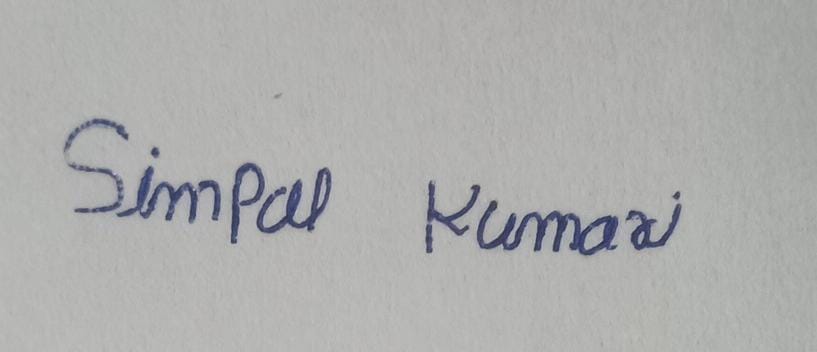 Simpal Kumari